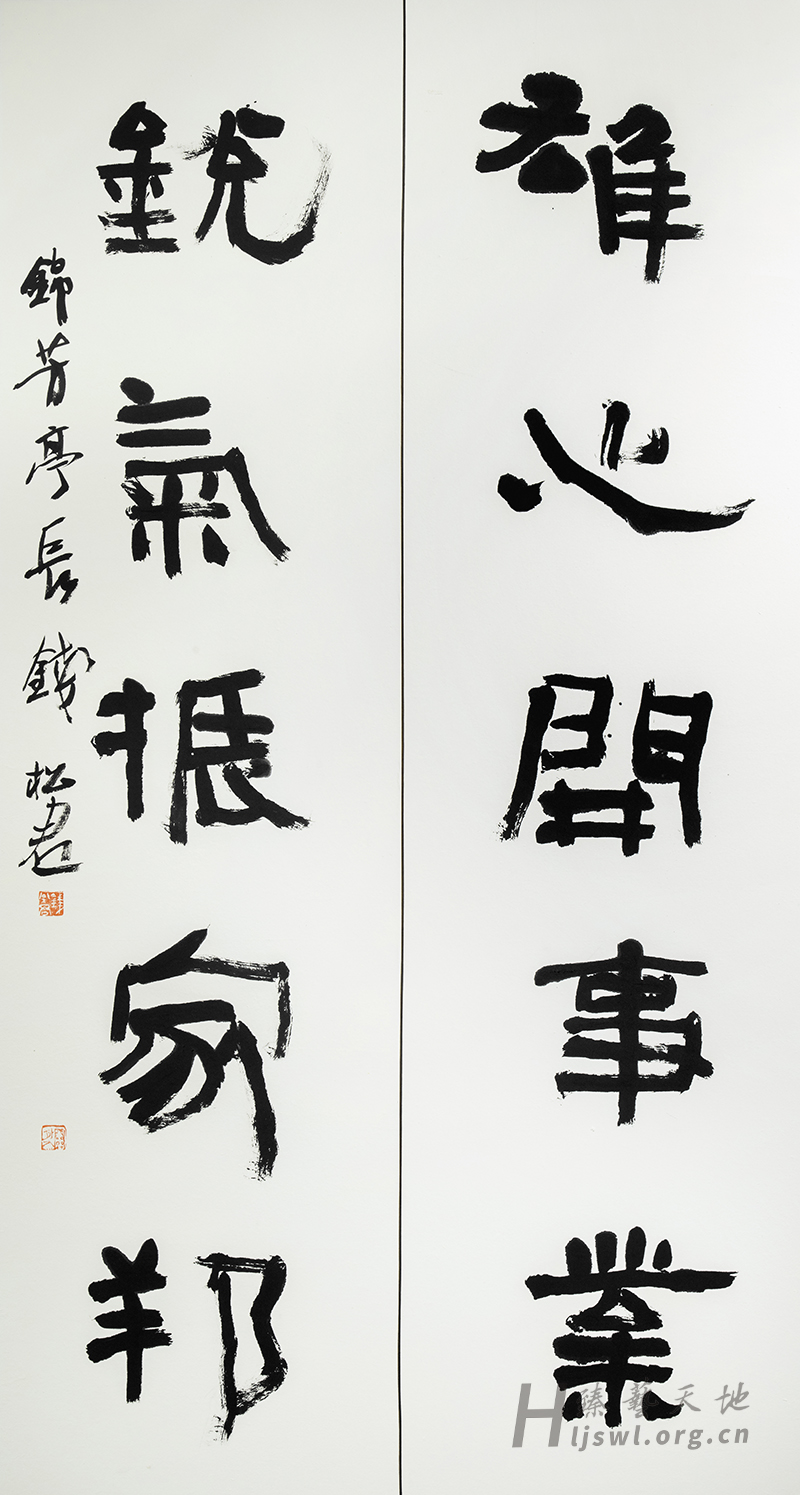 雄心開事業
銳氣振家邦
錦芳亭長鐵松書
臻藝天地
Hljswl.org.cn